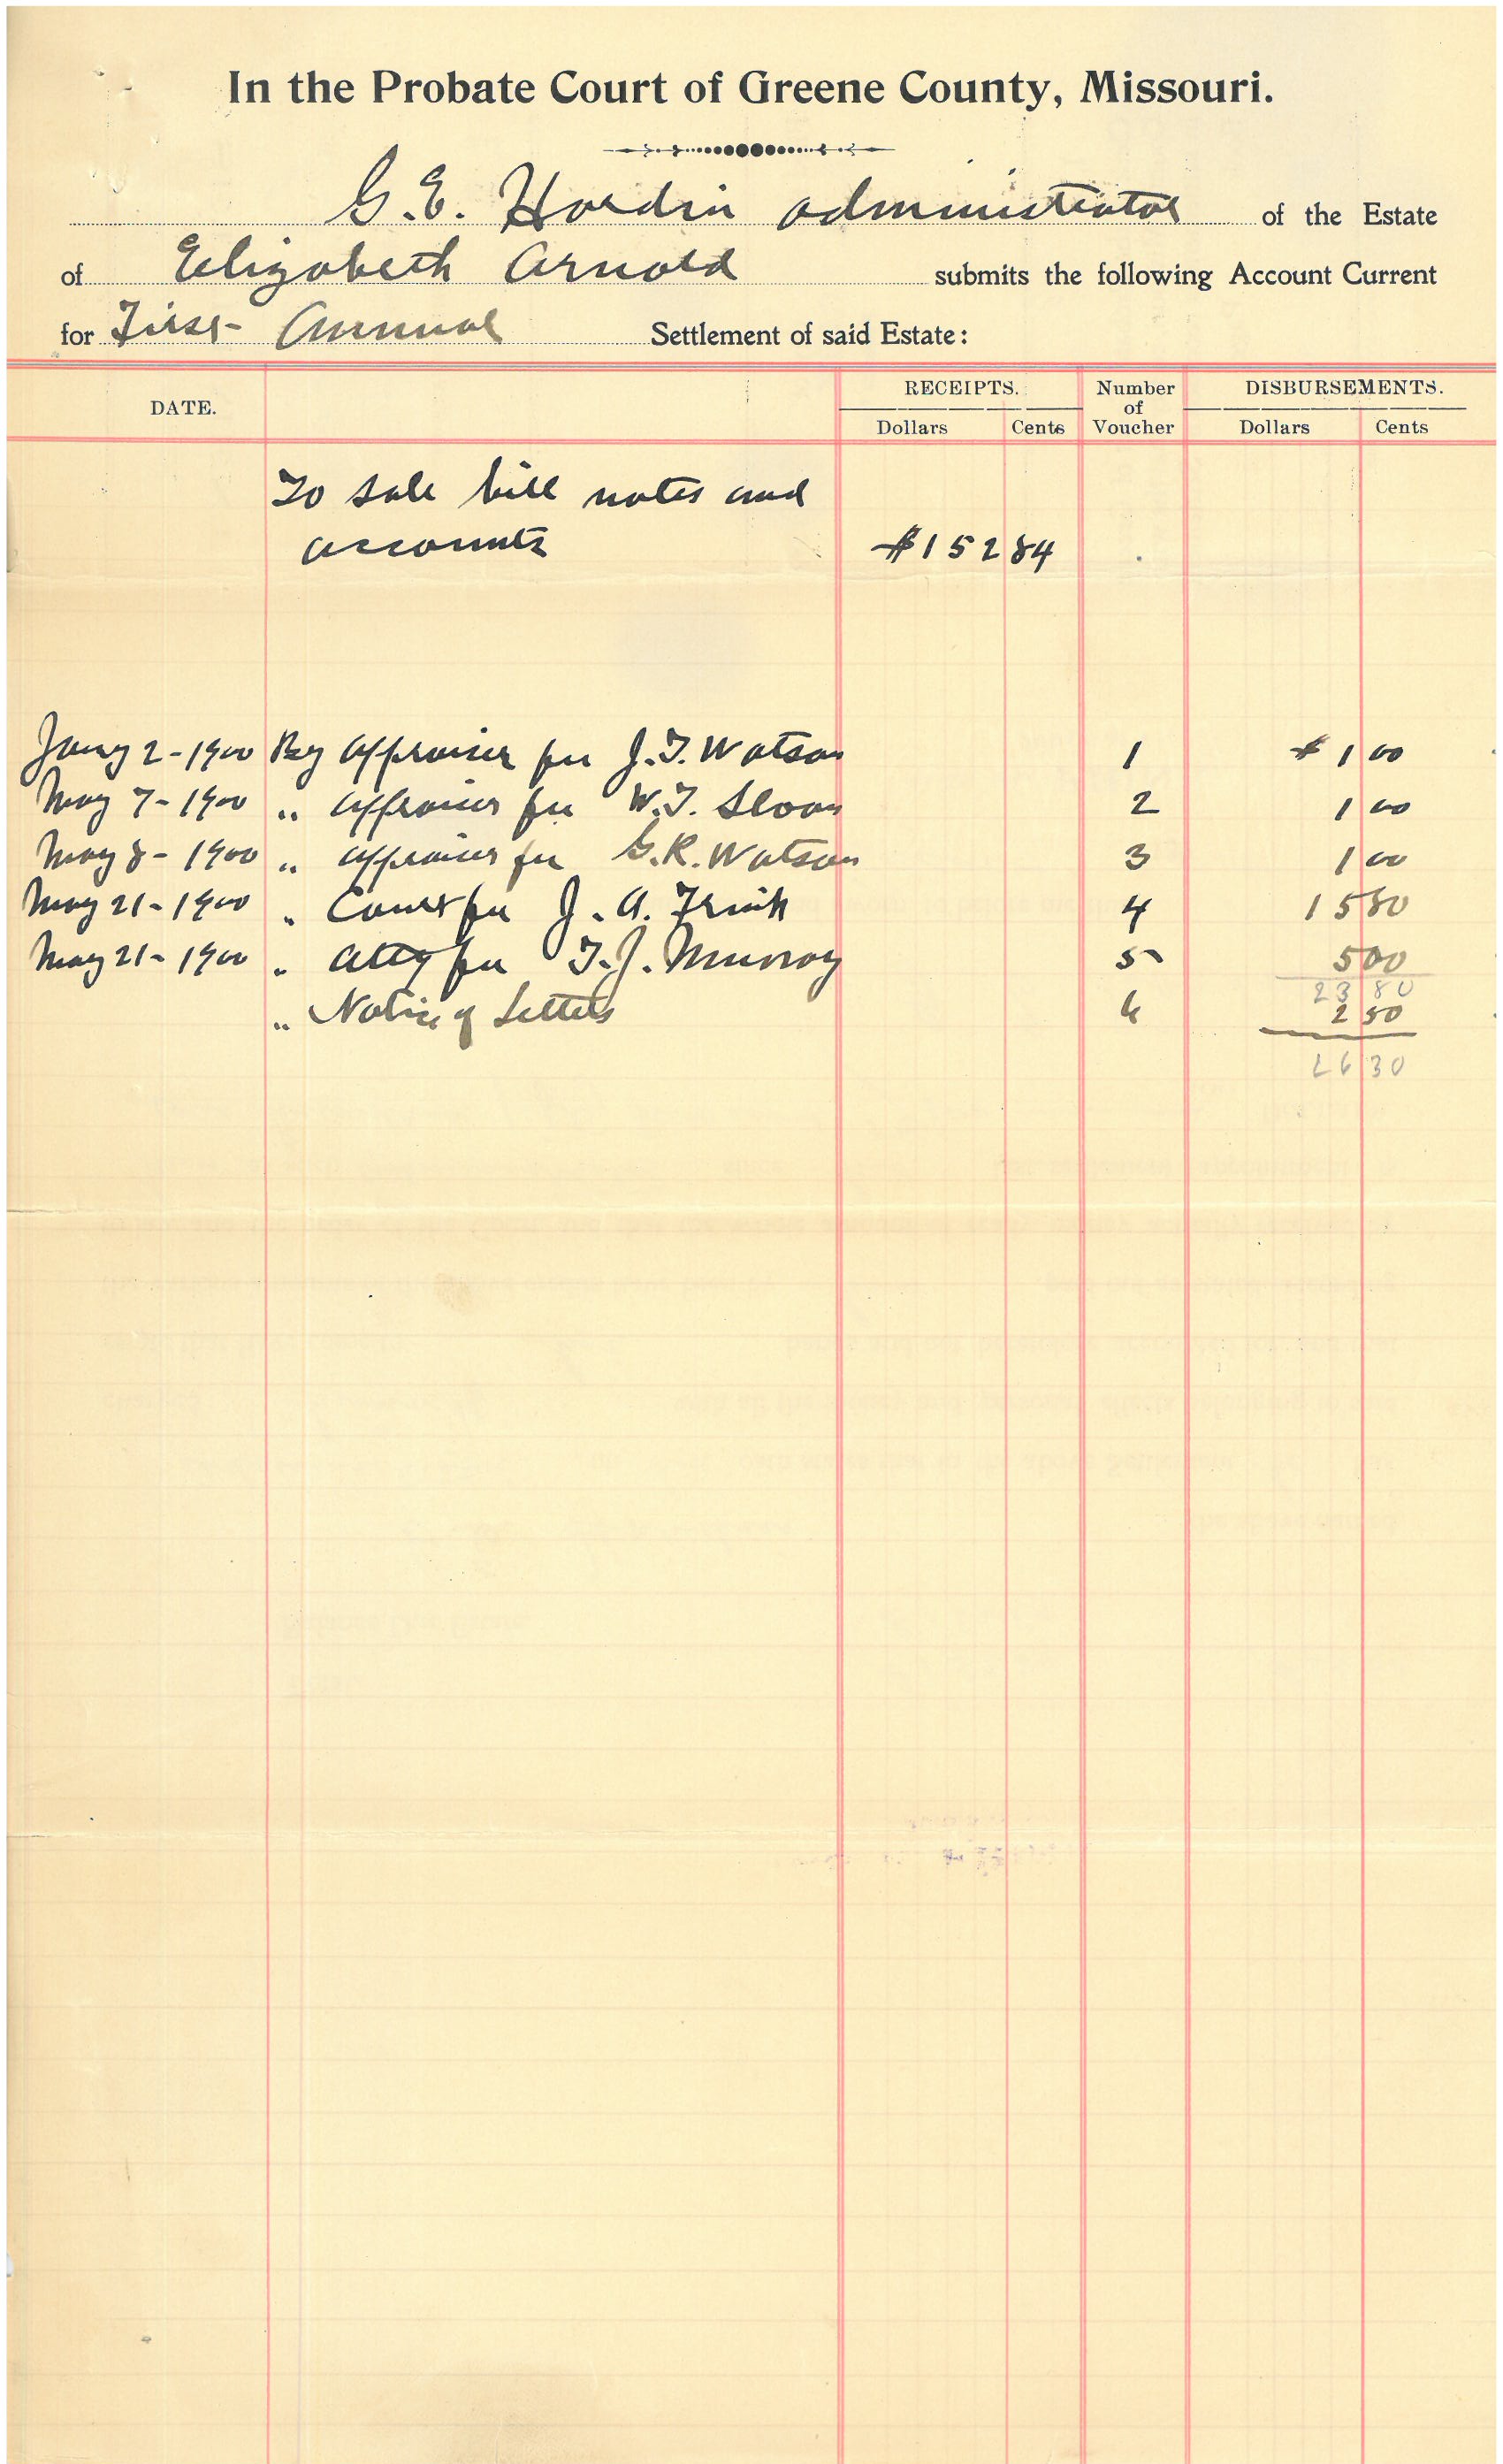 In the Probate Court of Greene County, Missouri.
G.E. Hardin administrator of the Estate
of Elizabeth Arnold submits the following Account Current
for First Annual Settlement of said Estate:
DATE. RECEIPTS. Number of Voucher DISBURSEMENTS.
Dollars Cents Dollars Cents
To sale bill notes and
accounts $152 84
Jany 2-1900 By appraiser fee J.T. Watson 1 $1 00
May 7-1900 " appraiser fee W.T. Sloan 2 1 00
May 8-1900 " appraiser fee G.R. Watson 3 1 00
May 21-1900 " Court fee J.A. 4 15 80
May 21-1900 " Atty fee T.J. Murray 5 5 00
23 80
" Notice of Letters 6 2 50
26 30